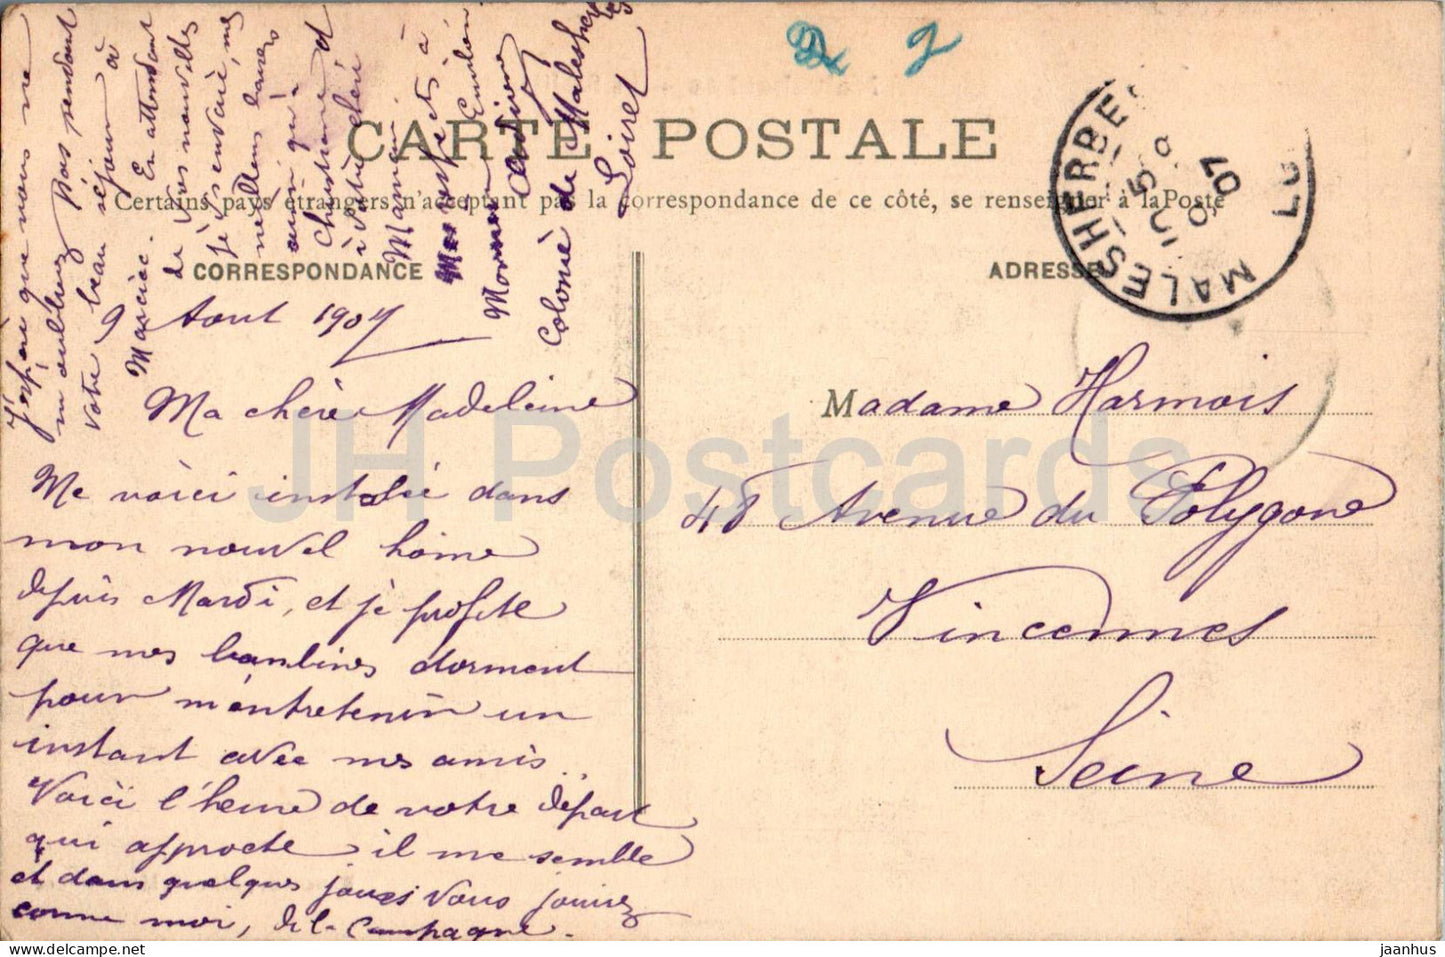 CARTE POSTALE
Certains pays étrangers n'acceptent pas la correspondance de ce côté, se renseigner à la Poste
CORRESPONDANCE
ADRESSE
MALESHERBES
07
9 Aout 1907
Ma chère Madeleine
Me voici installée dans
mon nouvel home
depuis Mardi, et je profite
que mes bambines dorment
pour m'entretenir un
instant avec mes amis.
Voici l'heure de votre départ
qui approche il me semble
et dans quelques jours vous jouirez
comme moi, de la Campagne.
J'espère que nous ne
m'oubliez pas pendant
votre beau séjour à
En attendant
de vos nouvelles
je t'envoie, mes
meilleurs baisers
ainsi qu'à
Christiane et
à petit chéri
Maman
Mes respects à
Emilie
Colonie de Malesherbes
Loiret
Madame Harmois
48 Avenue du Polygone
Vincennes
Seine
JH Postcards
jaanhus